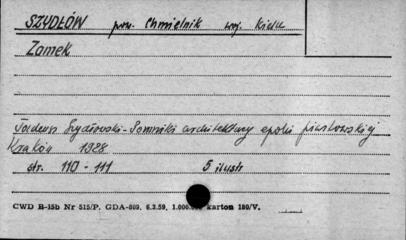 SZYDŁÓW pow. Chmielnik woj. Kielce
Zamek
Tadeusz Szydłowski - Pomniki architektury epoki piastowskiej
Kraków 1928
str. 110 - 111 5 ilustr
CWD B-15b Nr 515/P. GDA-809, 6.2.59, 1.000.000 karton 180/V.